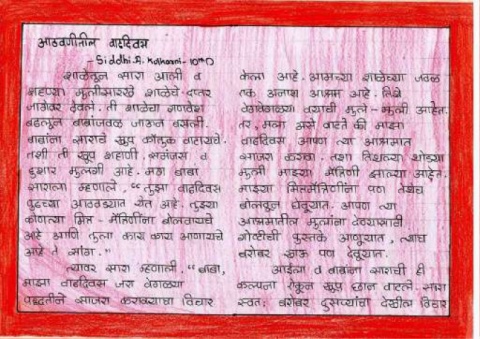 आठवणीतील वाढदिवस
- Siddhi. A. - 10th D
शाळेतून सारा आली व
शहाण्या मुलीसारखे शाळेचे दप्तर
जागेवर ठेवले. ती शाळेचा गणवेश
बदलून बाबांजवळ जाऊन बसली.
बाबांना साराचे खूप कौतुक वाटायचे.
तशी ती खूप शहाणी, समंजस व
हुशार मुलगी आहे. मग बाबा
साराला म्हणाले, "तुझा वाढदिवस
पुढच्या आठवड्यात येत आहे. तुझ्या
कोणत्या मित्र - मैत्रिणींना बोलवायचे
आहे आणि तुला काय काय आणायचे
आहे ते सांग."
त्यावर सारा म्हणाली, "बाबा,
माझा वाढदिवस जरा वेगळ्या
पद्धतीने साजरा करायचा विचार
केला आहे. आमच्या शाळेच्या जवळ
एक अनाथ आश्रम आहे. तिथे
वेगवेगळ्या वयाची मुले - मुली आहेत.
तर, मला असे वाटते की माझा
वाढदिवस आपण त्या आश्रमात
साजरा करावा. तशा तिथल्या थोड्या
मुली माझ्या मैत्रिणी झाल्या आहेत.
माझ्या मित्रमैत्रिणींना पण तेथेच
बोलवून घेवूयात. आपण त्या
आश्रमातील मुलांना देण्यासाठी
गोष्टींची पुस्तके आणूयात, त्याच
बरोबर खाऊ पण देवूयात.
आईला व बाबांना साराची ही
कल्पना ऐकून खूप छान वाटले. सारा
स्वतः बरोबर दुसऱ्यांचा देखील विचार